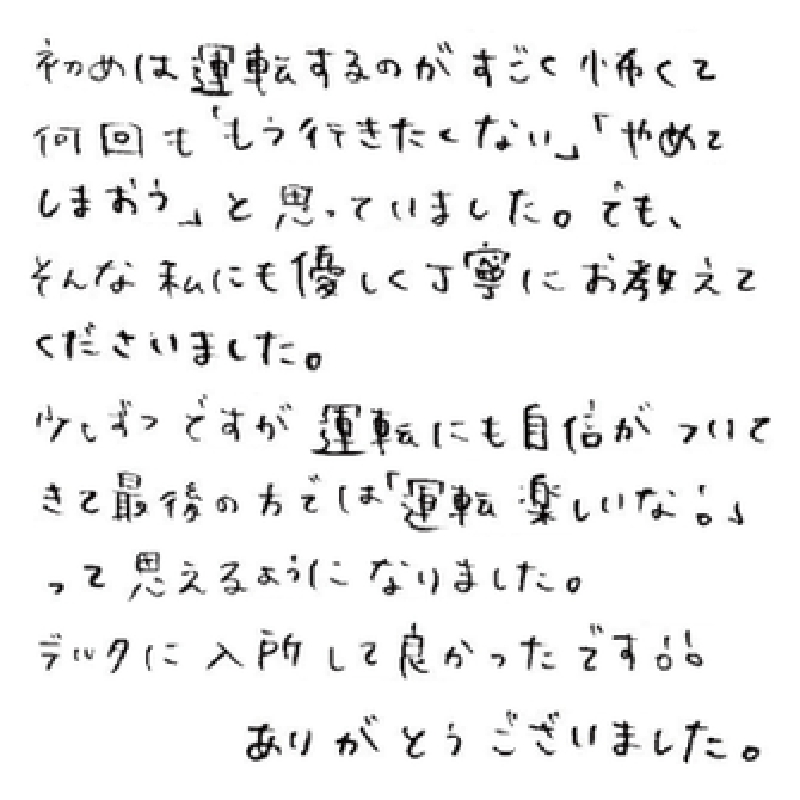 初めは運転するのがすごく怖くて
何回も「もう行きたくない」「やめて
しまおう」と思っていました。でも、
そんな私にも優しく丁寧にお教えて
くださいました。
少しずつですが運転にも自信がついて
きて最後の方では「運転楽しいな!」
って思えるようになりました。
デルクに入所して良かったです!!
ありがとうございました。